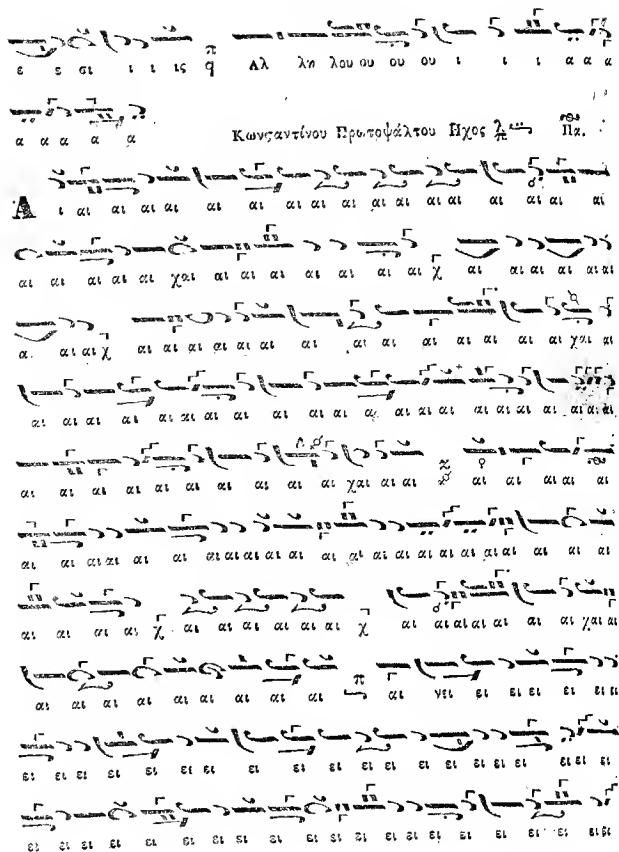 ε ε σι ι ι ις π q Αλ λη λου ου ου ου ι ι ι α α α
α α α α α
Κωνσαντίνου Πρωτοψάλτου Ηχος λ π Πα.
Α ι αι αι αι αι αι αι αι αι αι αι αι αι αι αι αι αι
αι αι αι αι αι χαι αι αι αι αι αι αι αι χ αι αι αι αι αι
α αι αι χ αι αι αι αι αι αι αι αι αι αι αι αι χαι αι
αι αι αι αι αι αι αι αι αι αι αι αι αι αι αι αι αι αι αι
αι αι αι αι αι αι αι αι αι χαι αι αι αι αι αι αι αι
αι αι αι αι αι αι αι αι αι αι αι αι αι αι αι αι αι αι αι αι αι αι αι
αι αι αι αι χ αι αι αι αι αι αι χ αι αι αι αι αι αι αι αι χαι αι
αι αι αι αι αι αι αι αι αι π αι νει ει ει ει ει ει ει ει
ει ει ει ει ει ει ει ει ει ει ει ει ει ει ει ει ει ει ει ει ει ει
ει ει ει ει ει ει ει ει ει ει ει ει ει ει ει ει ει ει ει ει ει ει